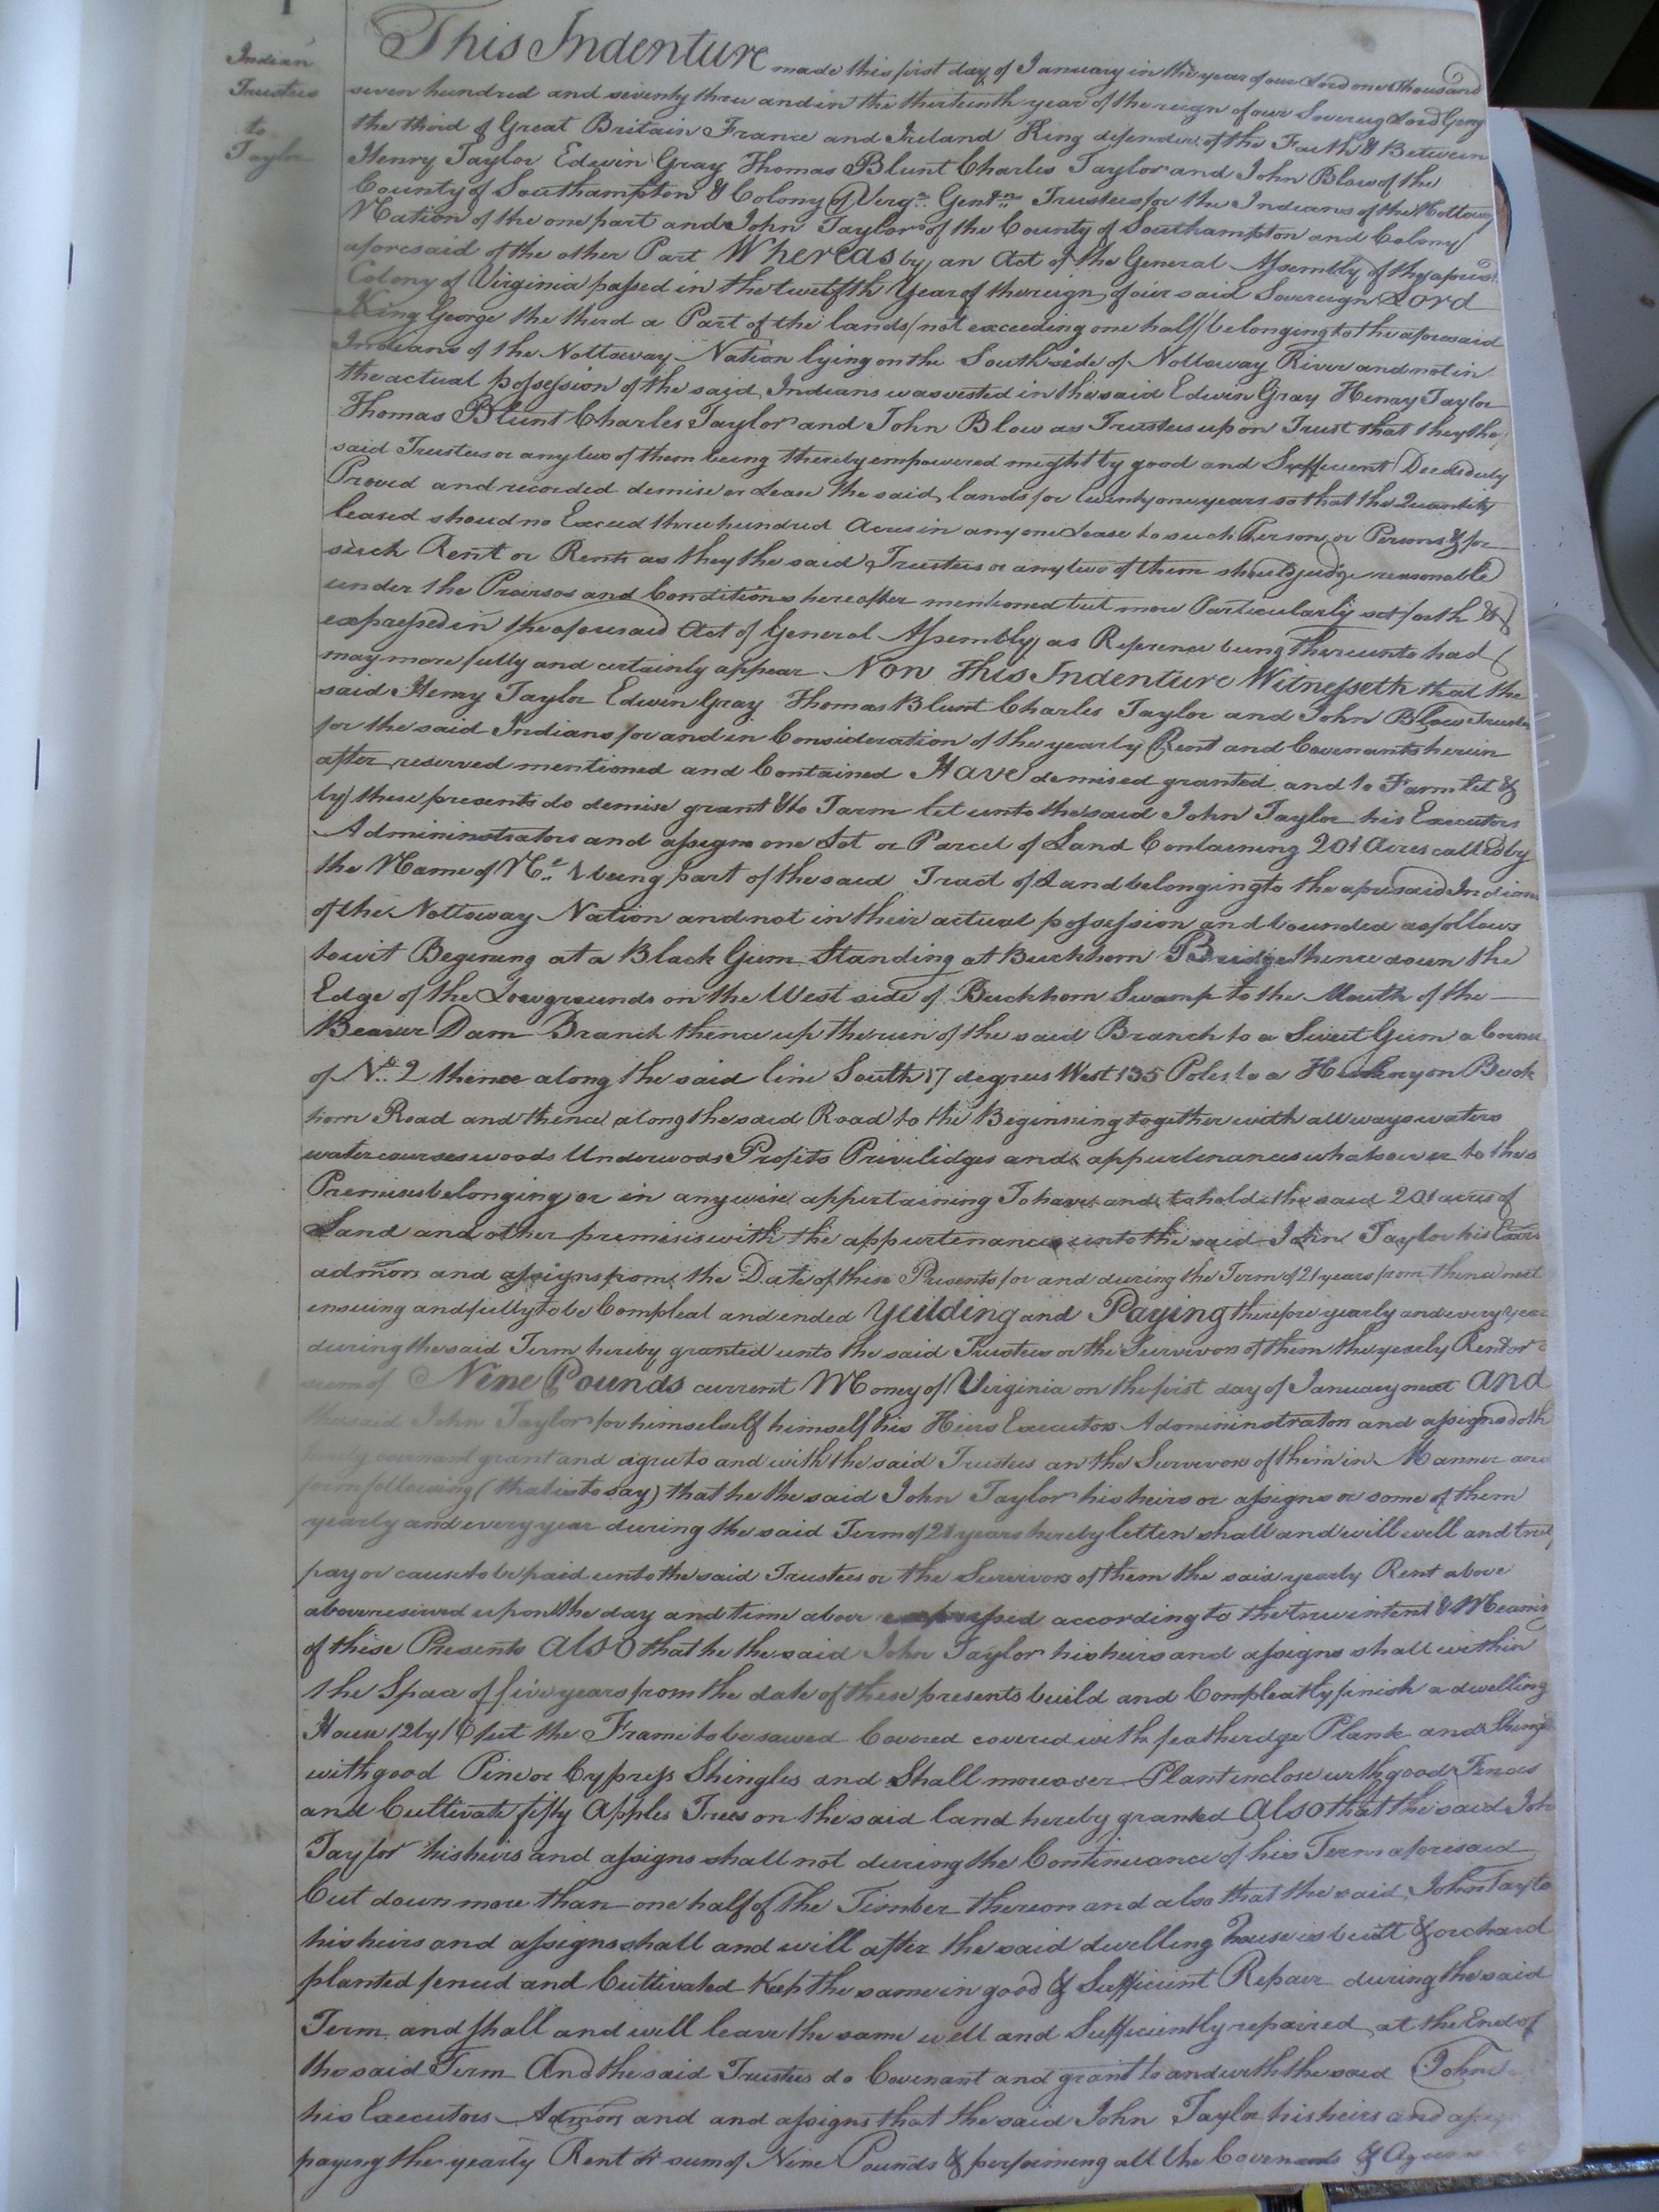 1
Indian
Trustees
to
Taylor
This Indenture made this first day of January in the year of our Lord one Thousand
seven hundred and seventy three and in the thirteenth year of the reign of our Sovereig Lord Georg
the third of Great Britain France and Ireland King defender of the Faith & Between
Henry Taylor Edwin Gray Thomas Blunt Charles Taylor and John Blow of the
County of Southampton & Colony of Virga. Gentn. Trustees for the Indians of the Nottoway
Nation of the one part and John Taylor of the County of Southampton and Colony
aforesaid of the other Part Whereas by an Act of the General Assembly of the aforesd.
Colony of Virginia passed in the twelfth Year of the reign of our said Sovereign Lord
King George the third a Part of the lands (not exceeding one half) belonging to the aforesaid
Indians of the Nottoway Nation lying on the South side of Nottoway River and not in
the actual possession of the said Indians was vested in the said Edwin Gray Henry Taylor
Thomas Blunt Charles Taylor and John Blow as Trustees upon Trust that they the
said Trustees or any two of them being thereby empowered might by good and Sufficient Deeds duly
Proved and recorded demise or Lease the said lands for twenty one years so that the Quantity
leased shoud no Exceed three hundred Acres in any one Lease to such Person or Persons & for
such Rent or Rents as they the said Trustees or any two of them should judge reasonable
under the Provisos and Conditions hereafter mentioned but more Particularly set forth &
expressed in the aforesaid Act of General Assembly as Reference being thereunto had
may more fully and certainly appear Now This Indenture Witnesseth that the
said Henry Taylor Edwin Gray Thomas Blunt Charles Taylor and John Blow Trustes
for the said Indians for and in Consideration of the yearly Rent and Covenants herein
after reserved mentioned and Contained Have demised granted and to Farm let &
by these presents do demise grant & to Farm let unto the said John Taylor his Executors
Admininstrators and assigns one Lot or Parcel of Land Containing 201 Acres called by
the Name of No. 1 being part of the said Tract of Land belonging to the aforesaid Indians
of the Nottoway Nation and not in their actual possession and bounded as follows
towit Begining at a Black Gum Standing at Buckhorn Bridge thence down the
Edge of the Lowgrounds on the West side of Buckhorn Swamp to the Mouth of the
Beaver Dam Branch thence up the run of the said Branch to a Sweet Gum a Corner
of No. 2 thence along the said line South 17 degrees West 135 Poles to a Hickory on Buck
horn Road and thence along the said Road to the Beginning together with all ways waters
watercourses woods Underwoods Profits Privilidges and appurtenances whatsoever to the s
Premises belonging or in any wise appertaining To have and to hold the said 201 acres of
Land and other premises with the appurtenances unto the said John Taylor his Exors
admors and assigns from the Date of these Presents for and during the Term of 21 years from thence next
ensuing and fully to be Compleat and ended Yeilding and Paying therefore yearly and every year
during the said Term hereby granted unto the said Trustees or the Survivors of them the yearly Rent or
sum of Nine Pounds current Money of Virginia on the first day of January next And
the said John Taylor for himselself himself his Heirs Executors Admininstrators and assigns doth
hereby covenant grant and agree to and with the said Trustees an the Survivors of them in Manner and
form following (that is to say) that he the said John Taylor his heirs or assigns or some of them
yearly and every year during the said Term of 21 years hereby letten shall and will well and truly
pay or cause to be paid unto the said Trustees or the Survivors of them the said yearly Rent above
above reserved upon the day and time above expressed according to the true intent & Meaning
of these Presents Also that he the said John Taylor his heirs and assigns shall within
the Space of five years from the date of these presents build and Compleatly finish a dwelling
House 12 by 16 feet the Frame to be sawed Covered covered with featheredge Plank and Shingd
with good Pine or Cypress Shingles and Shall moreover Plant inclose with good Fences
and Cultivate fifty Apples Trees on the said land hereby granted Also that the said John
Taylor his heirs and assigns shall not during the Continuance of his Term aforesaid
Cut down more than one half of the Timber thereon and also that the said John Taylo
his heirs and assigns shall and will after the said dwelling house is built & orchard
planted fenced and Cultivated Keep the same in good & Sufficient Repair during the said
Term and shall and will leave the same well and Sufficiently repaired at the End of
the said Term And the said Trustees do Covenant and grant to and with the said John
his Executors Admors and and assigns that the said John Taylor his heirs and assigns
paying the yearly Rent or sum of Nine Pounds & performing all the Covenants &